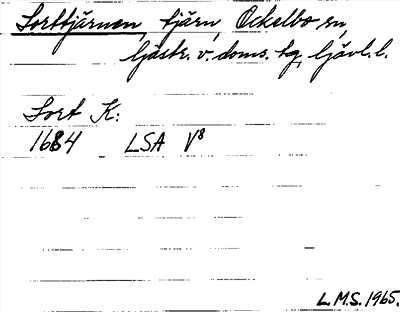 Sorttjärnen, tjärn, Ockelbo sn,
Gästr. v. doms. tg, Gävl. l.
Sort K:
1684 LSA V8
L.M.S. 1965.